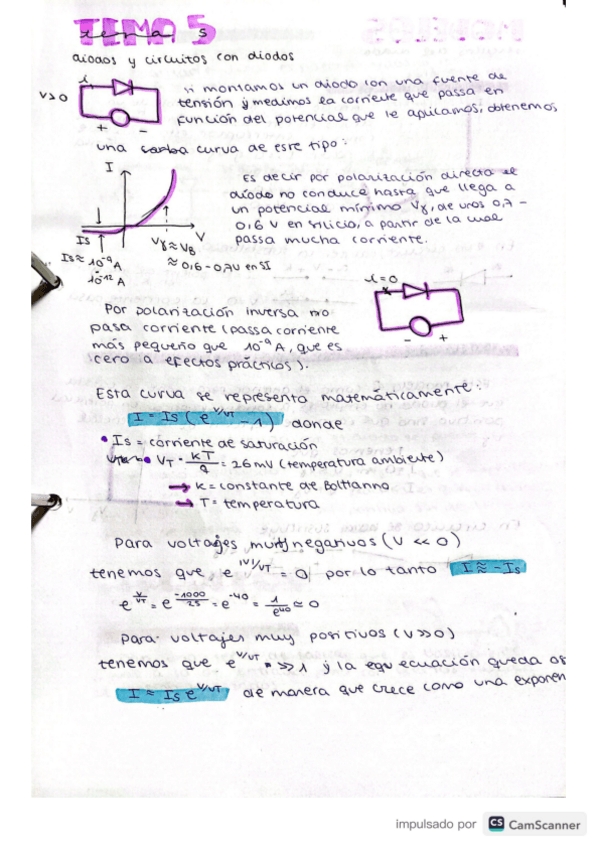 TEMA 5
diodos y circuitos con diodos
V>0
+ -
si montamos un diodo con una fuente de
tensión y medimos la corriente que passa en
función del potencial que le aplicamos, obtenemos
una curva de este tipo:
I
V
Is
Vγ ≈ VB
≈ 0,6 - 0,7V en SI
Is ≈ 10⁻⁹ A
10⁻¹² A
Es decir por polarización directa el
diodo no conduce hasta que llega a
un potencial mínimo Vγ, de unos 0,7 -
0,6 V en silicio, a partir de la cual
passa mucha corriente.
i=0
- +
Por polarización inversa no
pasa corriente (passa corriente
más pequeño que 10⁻⁹ A, que es
cero a efectos prácticos).
Esta curva se representa matemáticamente:
I = Is (e^V/VT - 1) donde
• Is = corriente de saturación
• VT = kT/q = 26 mV (temperatura ambiente)
→ K = constante de Boltlanno
→ T = temperatura
Para voltajes muy negativos (V << 0)
tenemos que, e^V/VT = 0, por lo tanto I ≈ -Is
e^V/VT = e^-1000/25 = e^-40 = 1/e^40 ≈ 0
Para voltajes muy positivos (V>>0)
tenemos que e^V/VT >> 1 y la ecuación queda
I = Is e^V/VT de manera que crece como una exponen
impulsado por CS CamScanner